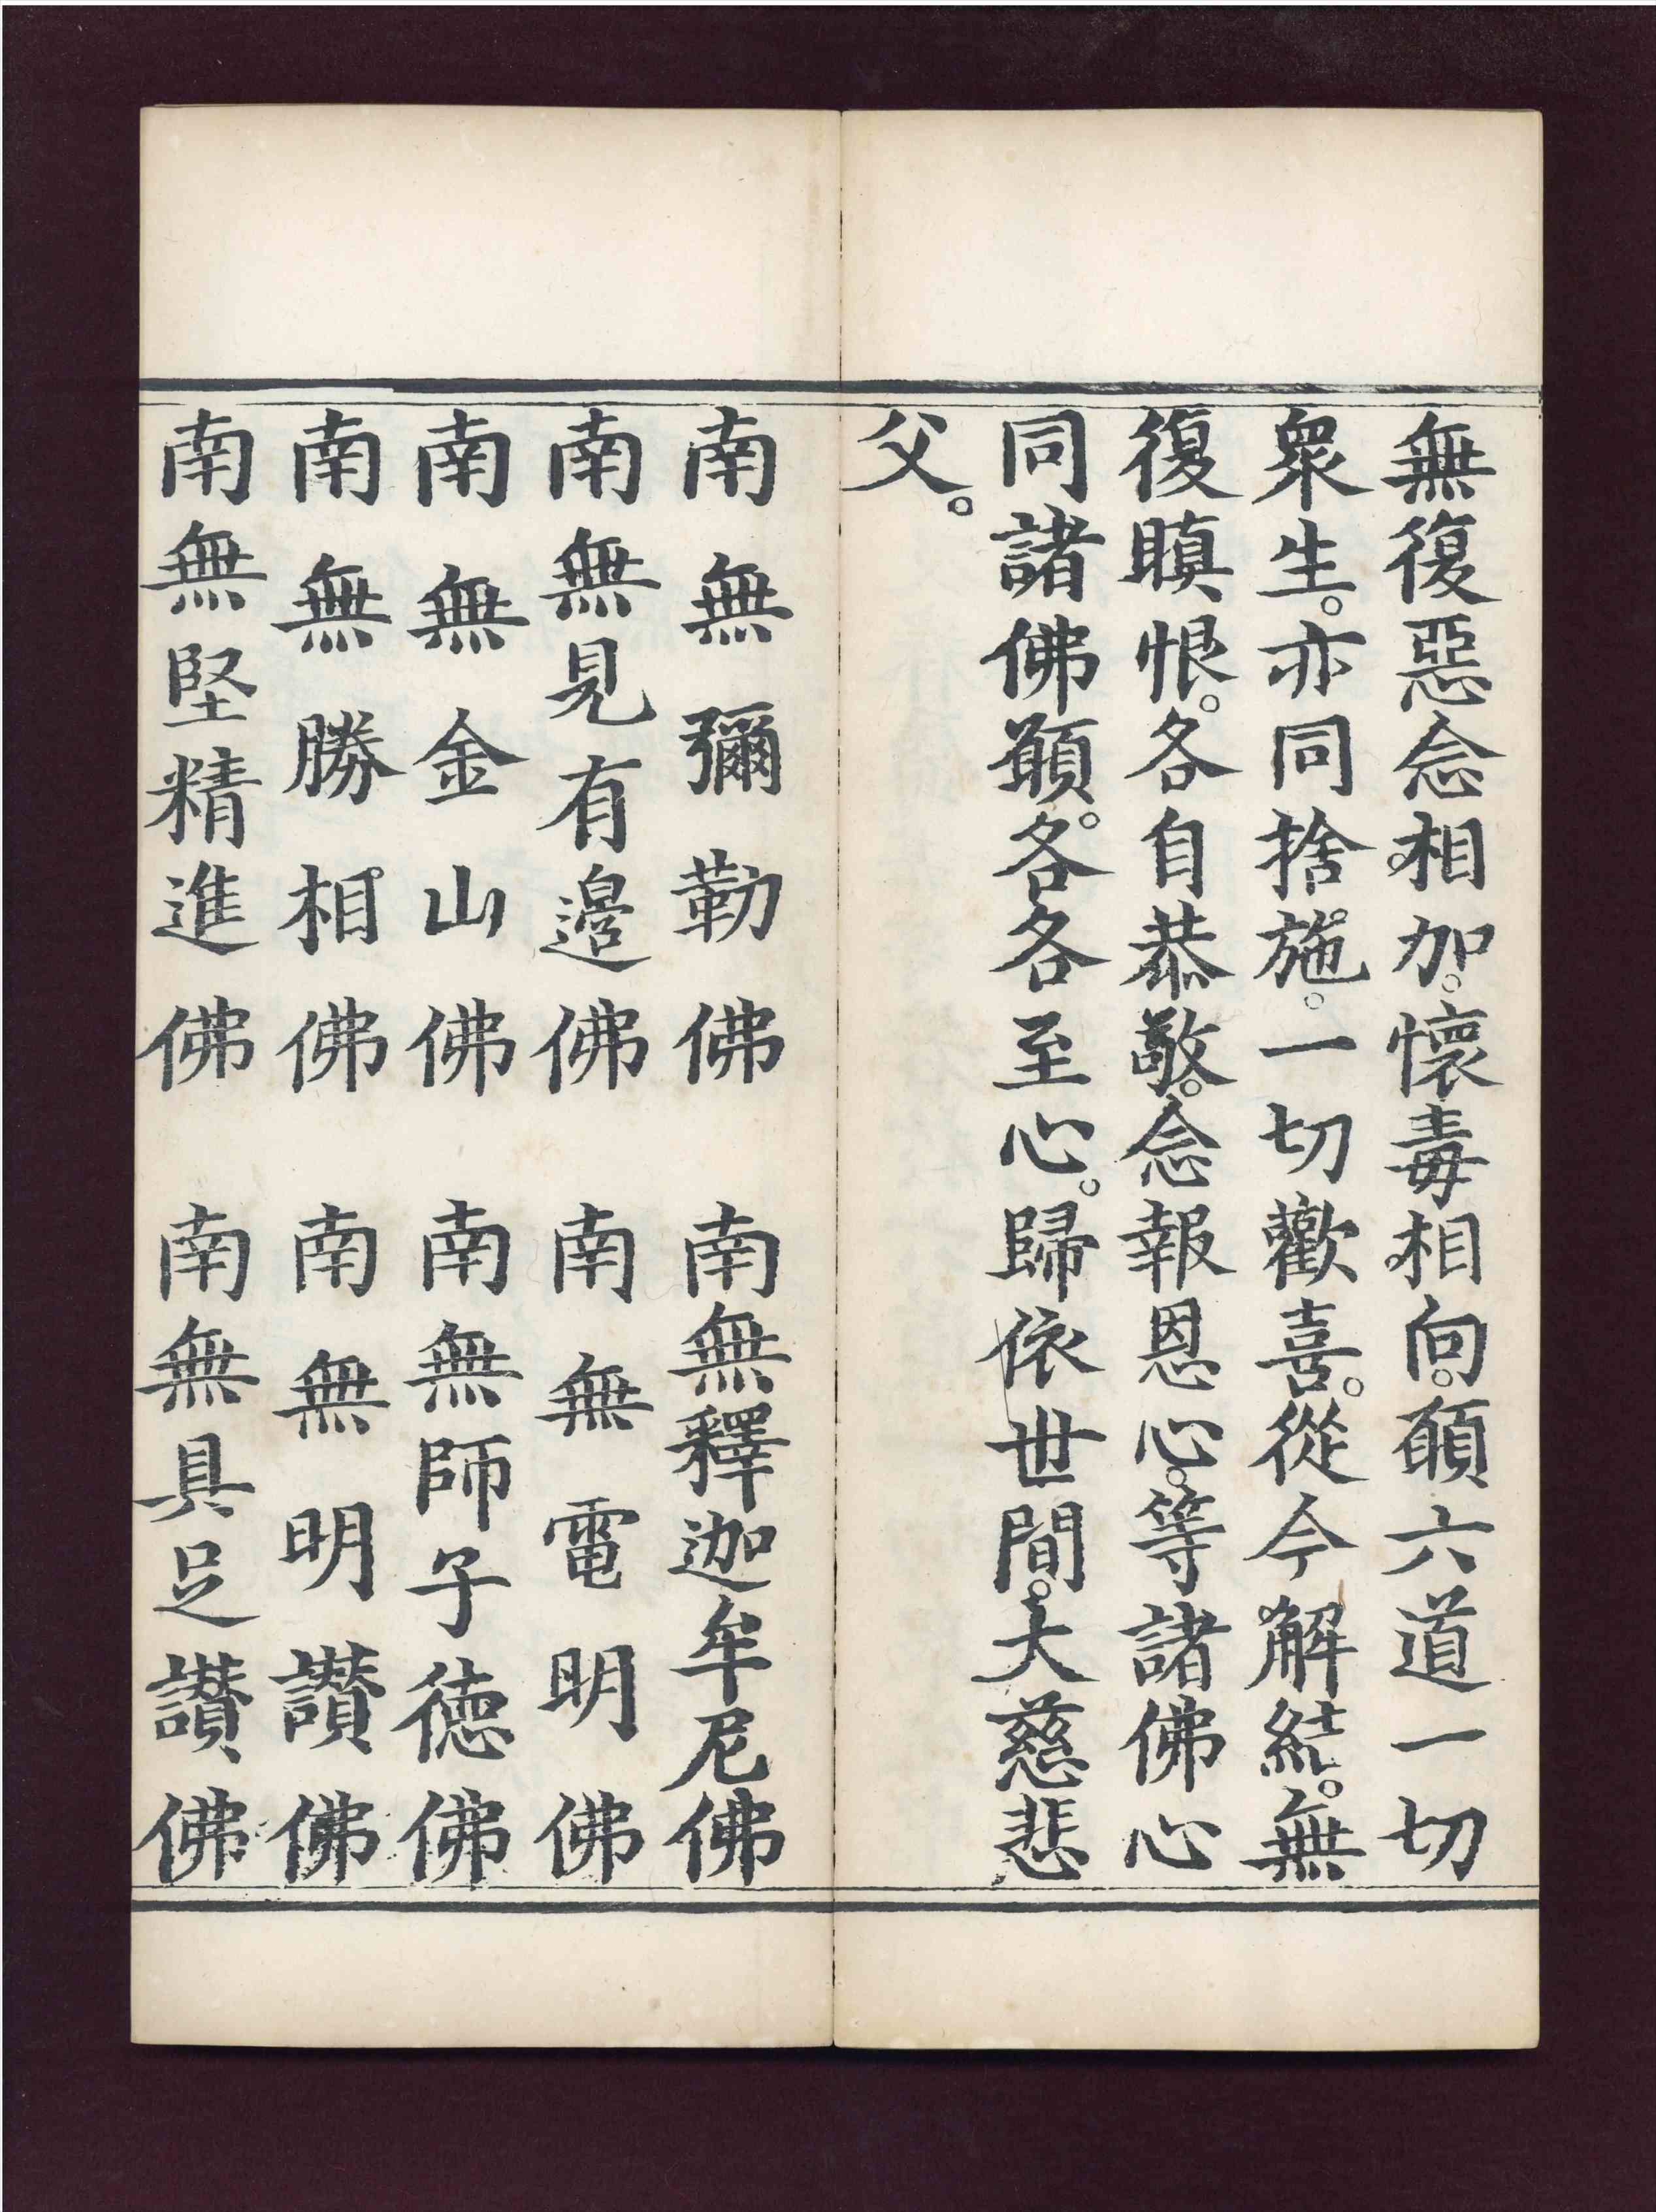 無復惡念相加。懷毒相向。願六道一切
衆生。亦同捨施。一切歡喜。從今解結。無
復瞋恨。各自恭敬。念報恩心。等諸佛心
同諸佛願。各各至心。歸依世間。大慈悲
父。
南無彌勒佛　南無釋迦牟尼佛
南無見有邊佛　南無電明佛
南無金山佛　南無師子德佛
南無勝相佛　南無明讚佛
南無堅精進佛　南無具足讚佛